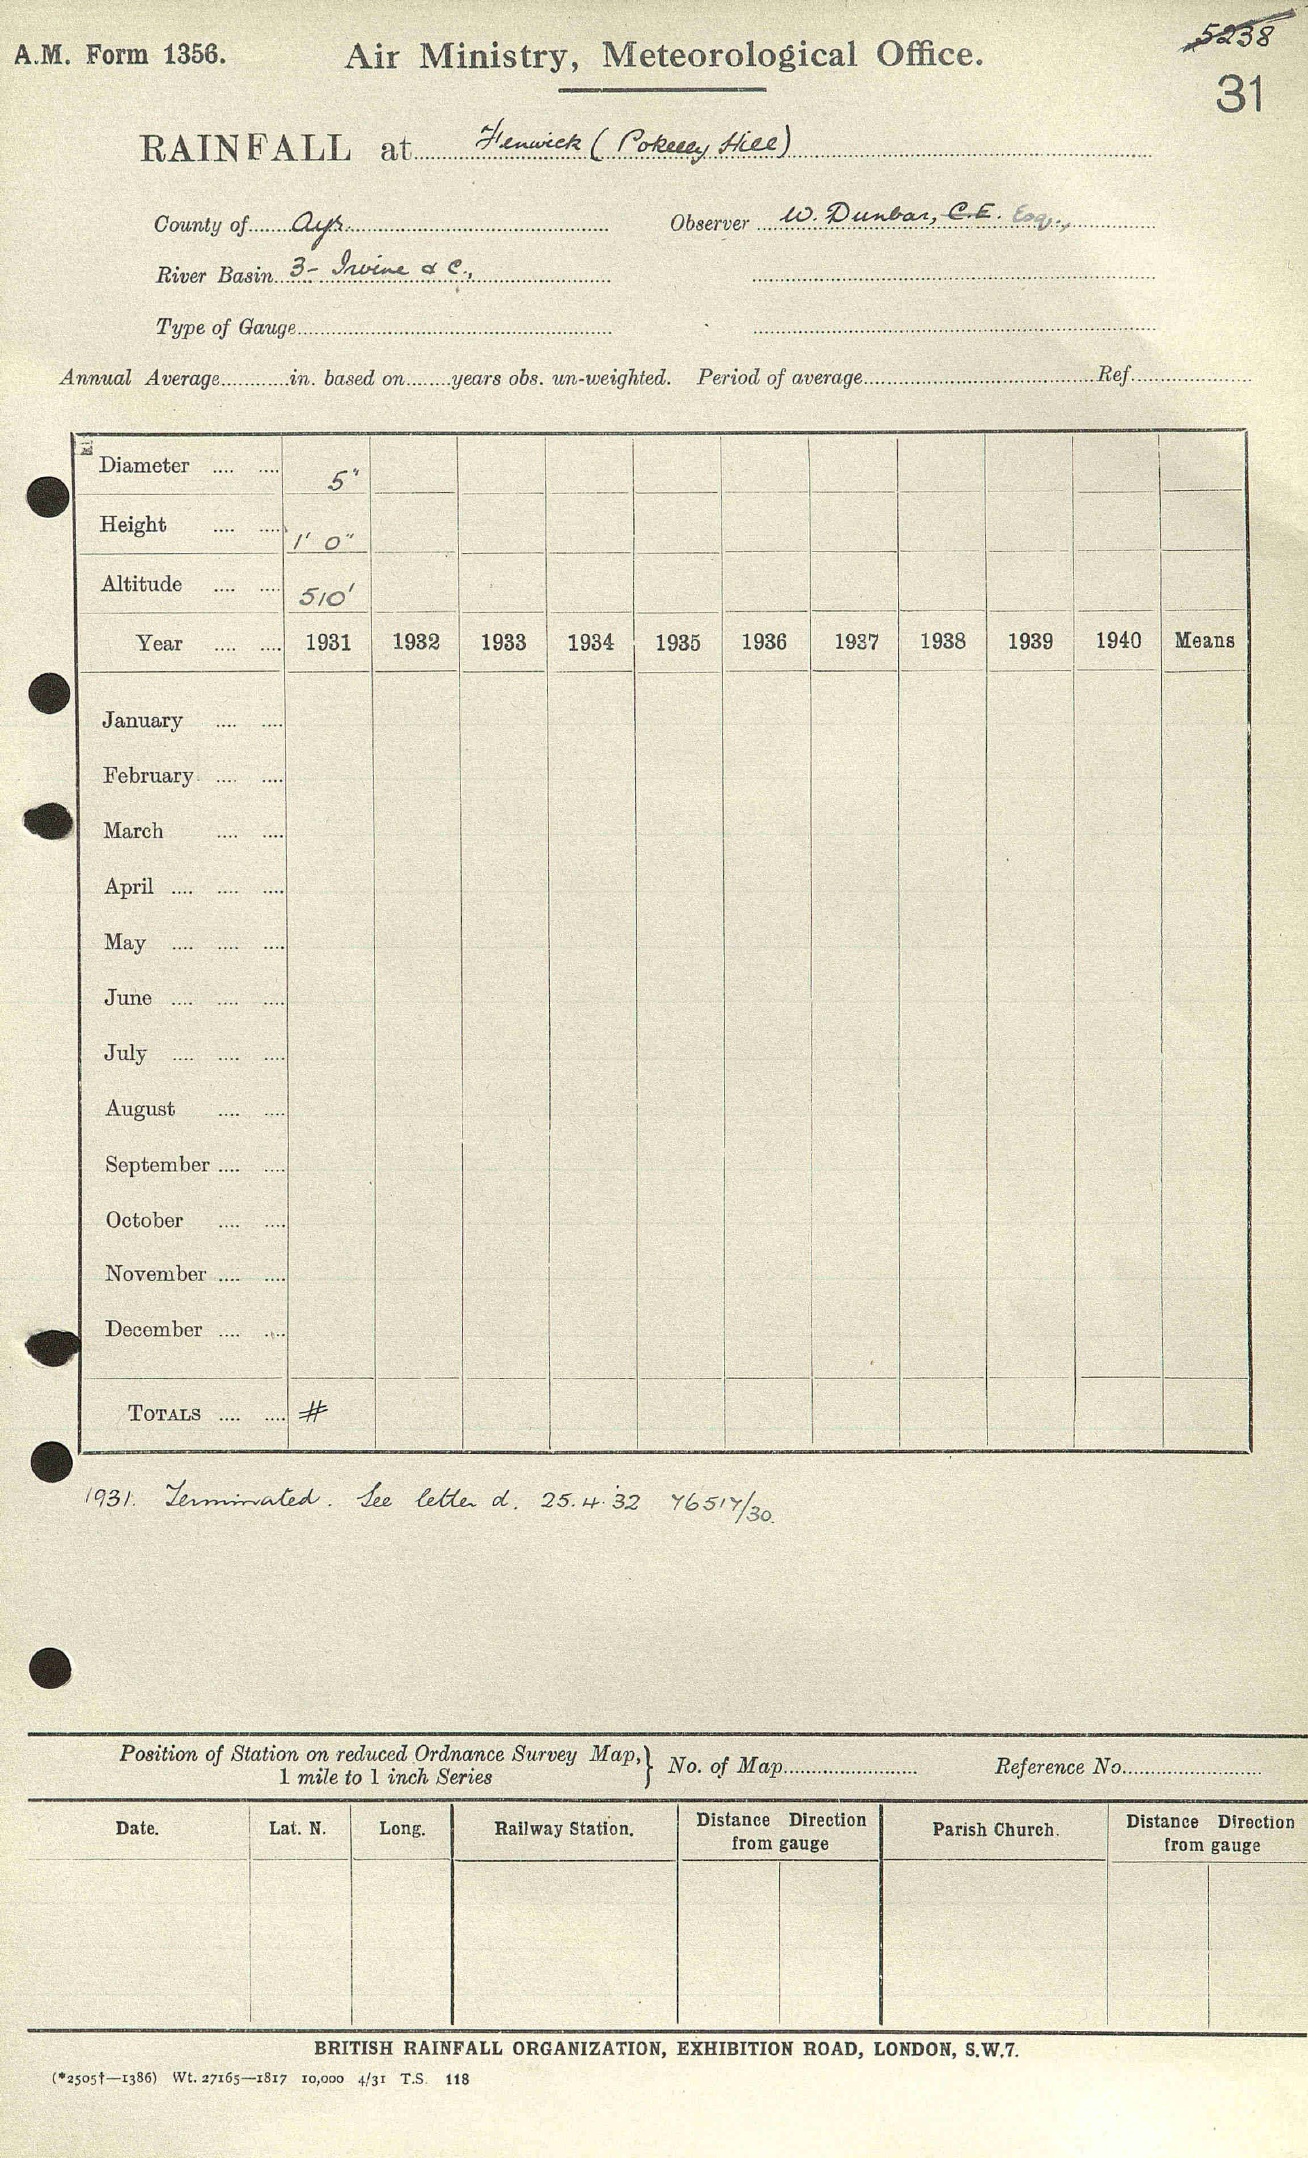 A.M. Form 1356.
Air Ministry, Meteorological Office.
5238
31
RAINFALL at Fenwick (Pokelly Hill)
County of Ayr. Observer W. Dunbar, C.E. Esq.,
River Basin 3- Irvine & C.,
Type of Gauge
Annual Average in. based on years obs. un-weighted. Period of average Ref.
Diameter .... .... 5"
Height .... .... 1' 0"
Altitude .... .... 510'
Year .... .... 1931 1932 1933 1934 1935 1936 1937 1938 1939 1940 Means
January .... ....
February .... ....
March .... ....
April .... .... ....
May .... .... ....
June .... .... ....
July .... .... ....
August .... ....
September .... ....
October .... ....
November .... ....
December .... ....
TOTALS .... .... #
1931. Terminated. See letter d. 25.4.32 76517/30.
Position of Station on reduced Ordnance Survey Map,} No. of Map Reference No.
1 mile to 1 inch Series
Date. Lat. N. Long. Railway Station. Distance Direction from gauge Parish Church. Distance Direction from gauge
BRITISH RAINFALL ORGANIZATION, EXHIBITION ROAD, LONDON, S.W.7.
(*2505†—1386) Wt. 27165—1817 10,000 4/31 T.S. 118